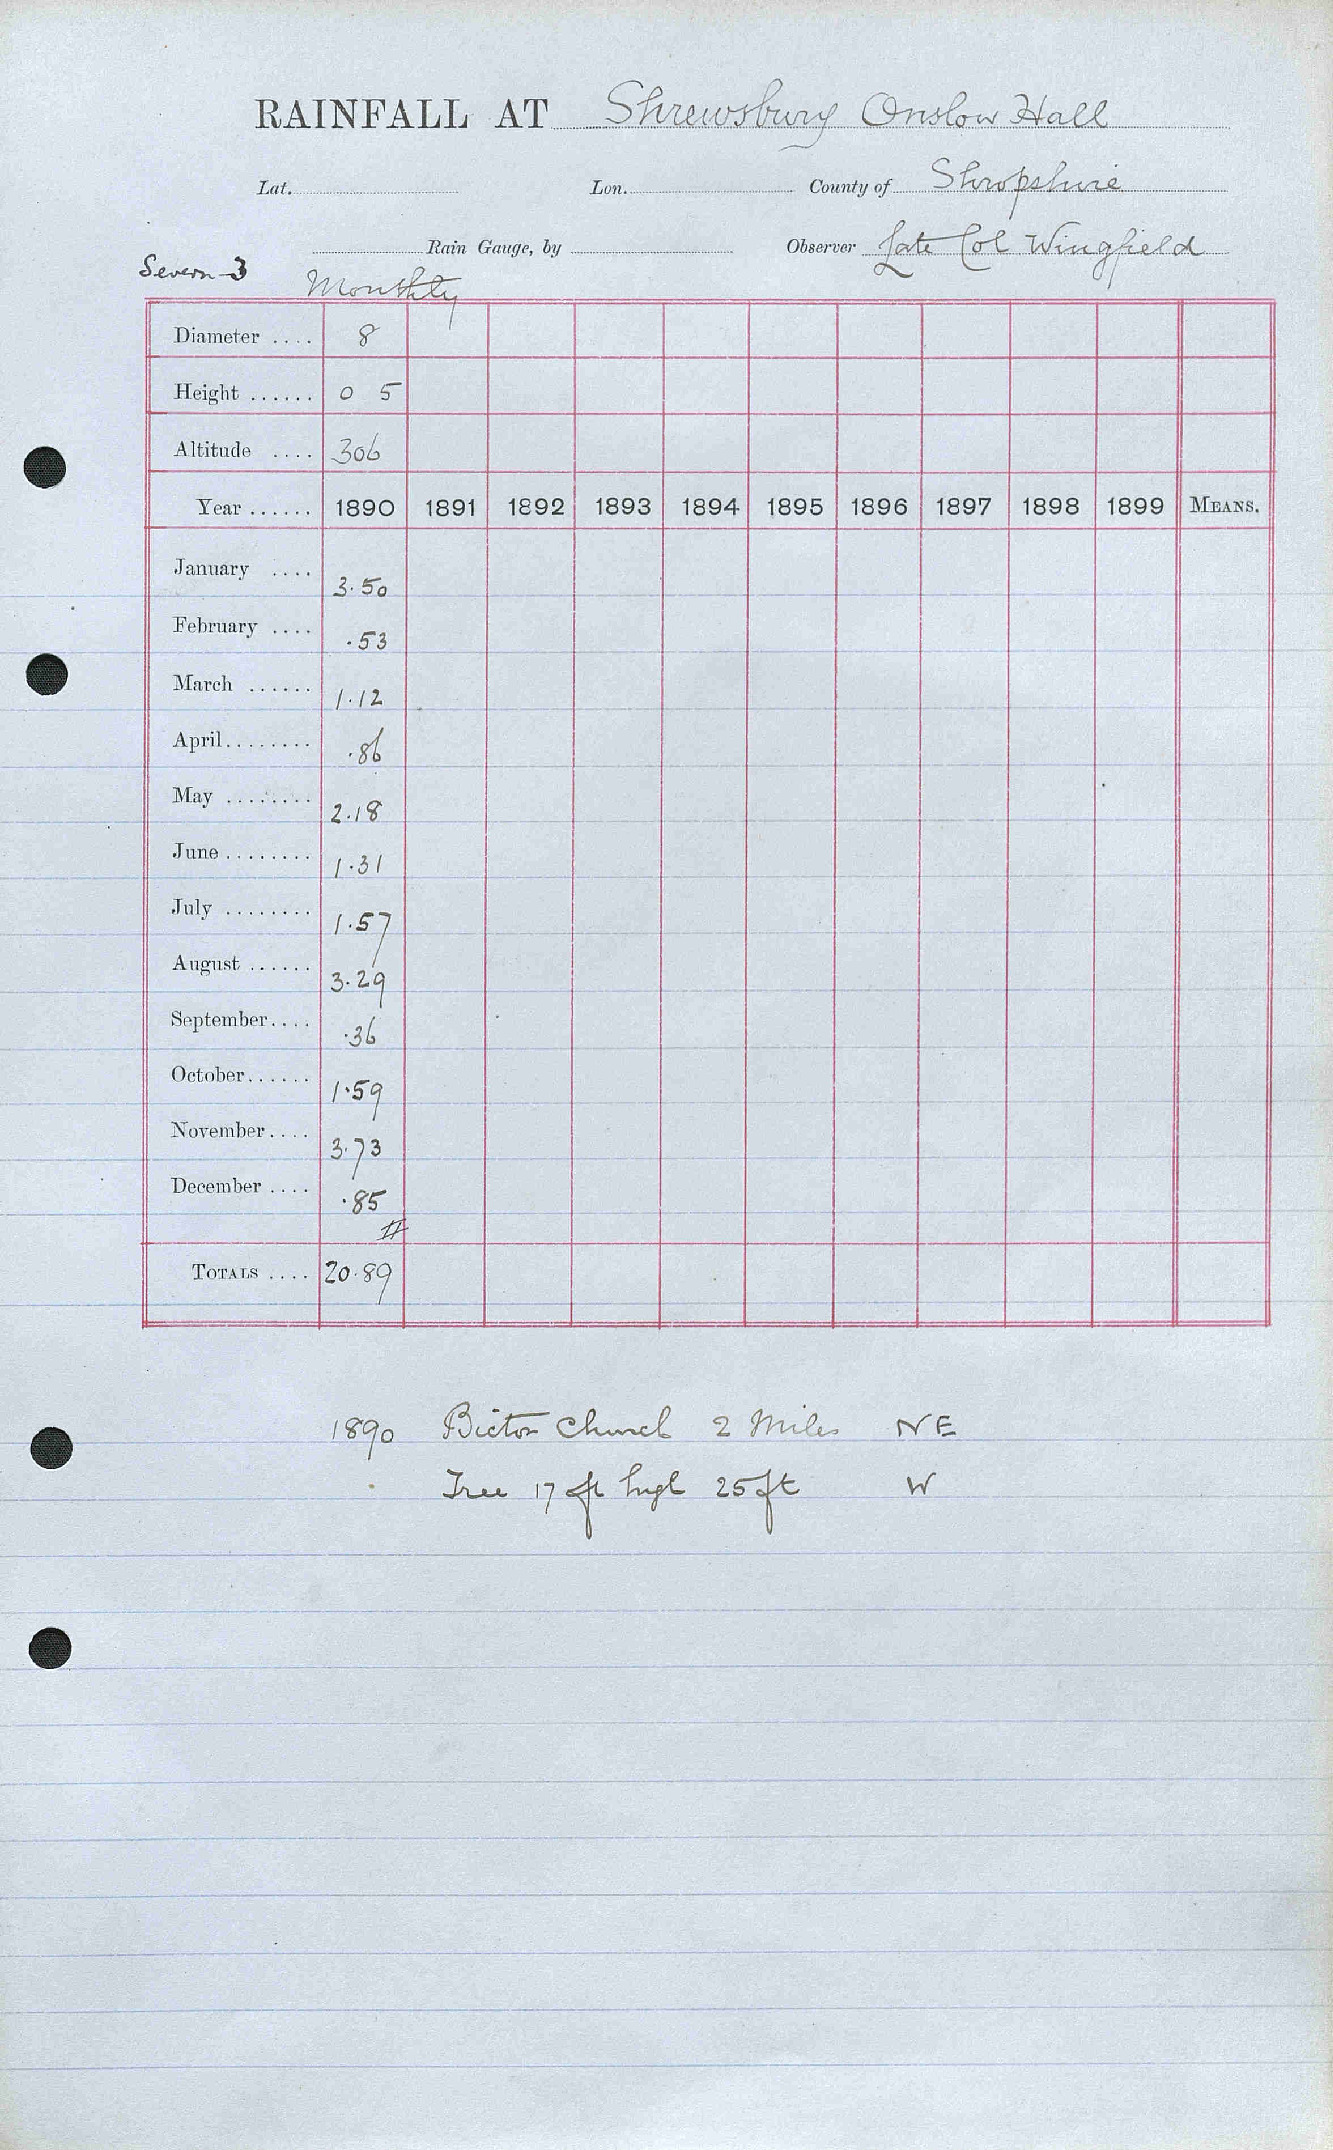 RAINFALL AT Shrewsbury Onslow Hall
Lat. Lon. County of Shropshire
Rain Gauge, by Observer Late Col Wingfield
Severn 3 Monthly
Diameter .... 8
Height ...... 0 5
Altitude .... 306
Year ...... 1890 1891 1892 1893 1894 1895 1896 1897 1898 1899 MEANS.
January .... 3.50
February .... .53
March ...... 1.12
April........ .86
May ........ 2.18
June ........ 1.31
July ........ 1.57
August ...... 3.29
September.... .36
October...... 1.59
November.... 3.73
December .... .85
TOTALS .... 20.89
1890 Bicton Church 2 Miles NE
Tree 17 ft high 25 ft W